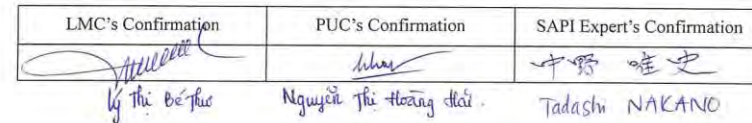 LMC's Confirmation PUC's Confirmation SAPI Expert's Confirmation
中野 唯史
Lý Thị Bé Thư Nguyễn Thị Hoàng Hải. Tadashi NAKANO